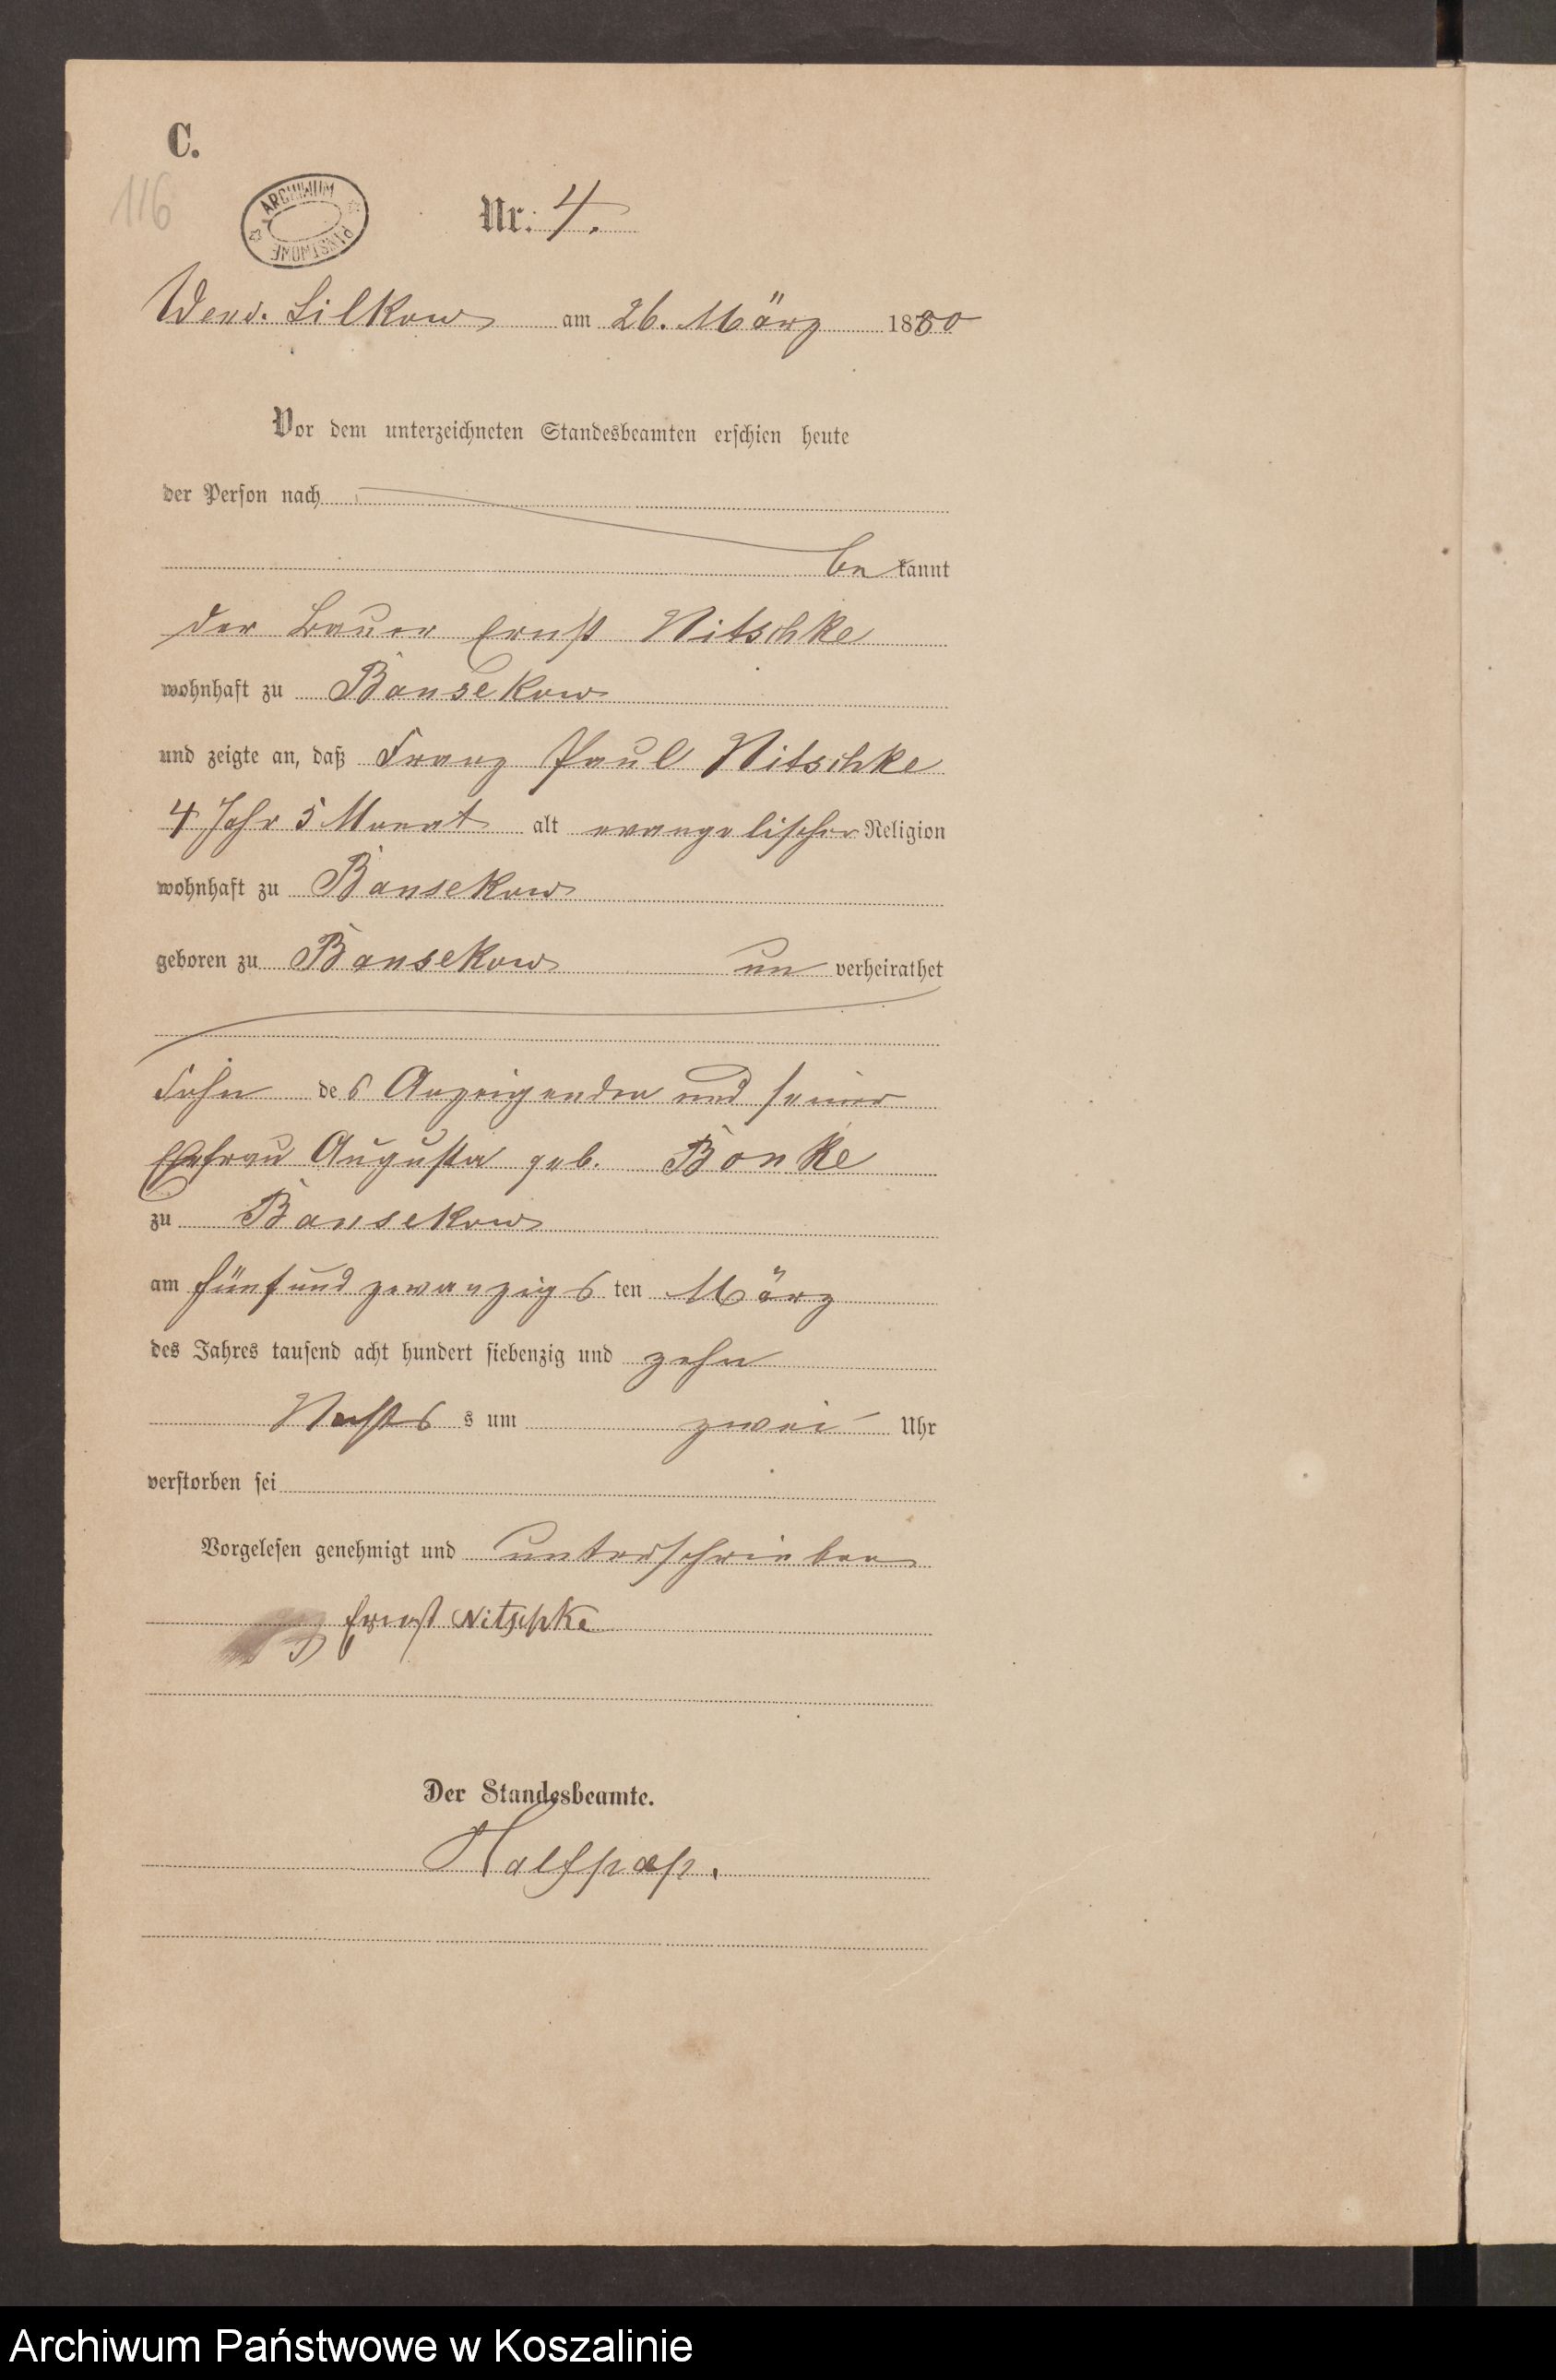 C.
116
ARCHIWUM PAŃSTWOWE
Nr. 4.
Wend. Silkow am 26. März 1880
Vor dem unterzeichneten Standesbeamten erschien heute
der Person nach
be kannt
der Bauer Ernst Nitschke
wohnhaft zu Bansekow
und zeigte an, daß Franz Paul Nitschke
4 Jahr 5 Monat alt evangelischer Religion
wohnhaft zu Bansekow
geboren zu Bansekow un verheirathet
Sohn des Anzeigenden und seiner
Ehefrau Augusta geb. Bonke
zu Bansekow
am fünfundzwanzigsten März
des Jahres tausend acht hundert siebenzig und zehn
Nachts s um zwei Uhr
verstorben sei
Vorgelesen genehmigt und unterschrieben
Ernst Nitschke
Der Standesbeamte.
Halfpap.
Archiwum Państwowe w Koszalinie